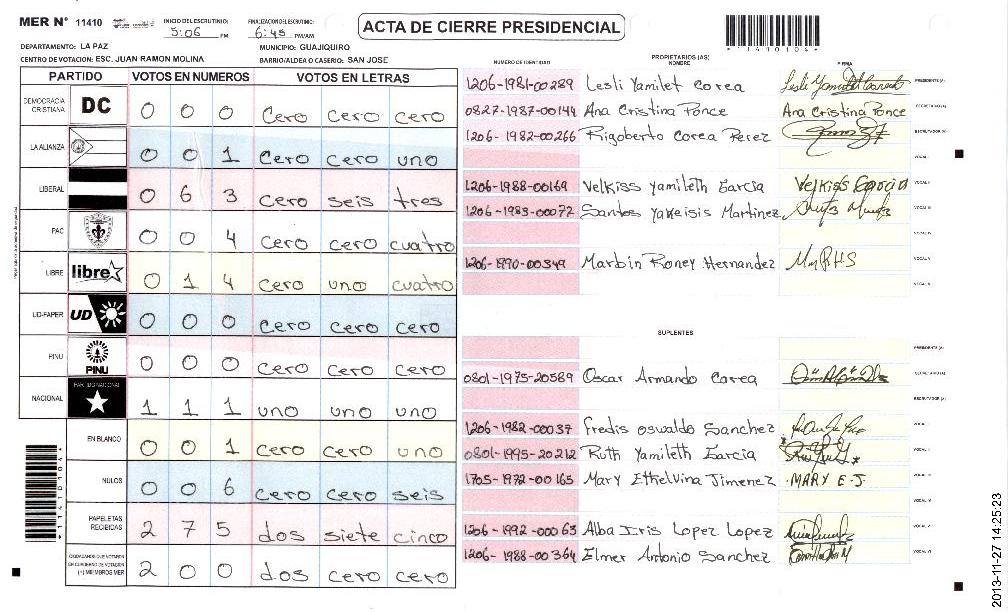 MER N° 11410
INICIO DEL ESCRUTINIO: 5:06 PM
FINALIZACION DEL ESCRUTINIO: 6:45 PM/AM
ACTA DE CIERRE PRESIDENCIAL
*1141010 4*
DEPARTAMENTO: LA PAZ
MUNICIPIO: GUAJIQUIRO
CENTRO DE VOTACION: ESC. JUAN RAMON MOLINA
BARRIO/ALDEA O CASERIO: SAN JOSE
PARTIDO VOTOS EN NUMEROS VOTOS EN LETRAS
DEMOCRACIA CRISTIANA DC 0 0 0 cero cero cero
LA ALIANZA 0 0 1 cero cero uno
LIBERAL 0 6 3 cero seis tres
PAC 0 0 4 cero cero cuatro
LIBRE libre 0 1 4 cero uno cuatro
UD-FAPER UD 0 0 0 cero cero cero
PINU PINU 0 0 0 cero cero cero
NACIONAL PARTIDO NACIONAL 1 1 1 uno uno uno
EN BLANCO 0 0 1 cero cero uno
NULOS 0 0 6 cero cero seis
PAPELETAS RECIBIDAS 2 7 5 dos siete cinco
CIUDADANOS QUE VOTARON EN CUADERNO DE VOTACION (+) MIEMBROS MER 2 0 0 dos cero cero
PROPIETARIOS (AS)
NUMERO DE IDENTIDAD NOMBRE FIRMA
1206-1981-00289 Lesli Yamilet Corea PRESIDENTE (A)
0827-1987-00144 Ana Cristina Ponce Ana Cristina Ponce SECRETARIO (A)
1206-1982-00266 Rigoberto Corea Perez ESCRUTADOR (A)
VOCAL I
1206-1988-00169 Velkiss Yamileth Garcia Velkiss Garcia VOCAL II
1206-1983-00072 Santos Yakeisis Martinez VOCAL III
VOCAL IV
1206-1990-00349 Marbin Roney Hernandez VOCAL V
VOCAL VI
SUPLENTES
PRESIDENTE (A)
0801-1975-20589 Oscar Armando Correa SECRETARIO (A)
ESCRUTADOR (A)
1206-1982-00037 Fredis Osvaldo Sanchez VOCAL I
0801-1995-20212 Ruth Yamileth Garcia VOCAL II
1705-1972-00165 Mary Ethelvina Jimenez MARY E.J. VOCAL III
VOCAL IV
1206-1992-00063 Alba Iris Lopez Lopez VOCAL V
1206-1988-00364 Elmer Antonio Sanchez VOCAL VI
2013-11-27 14:25:23